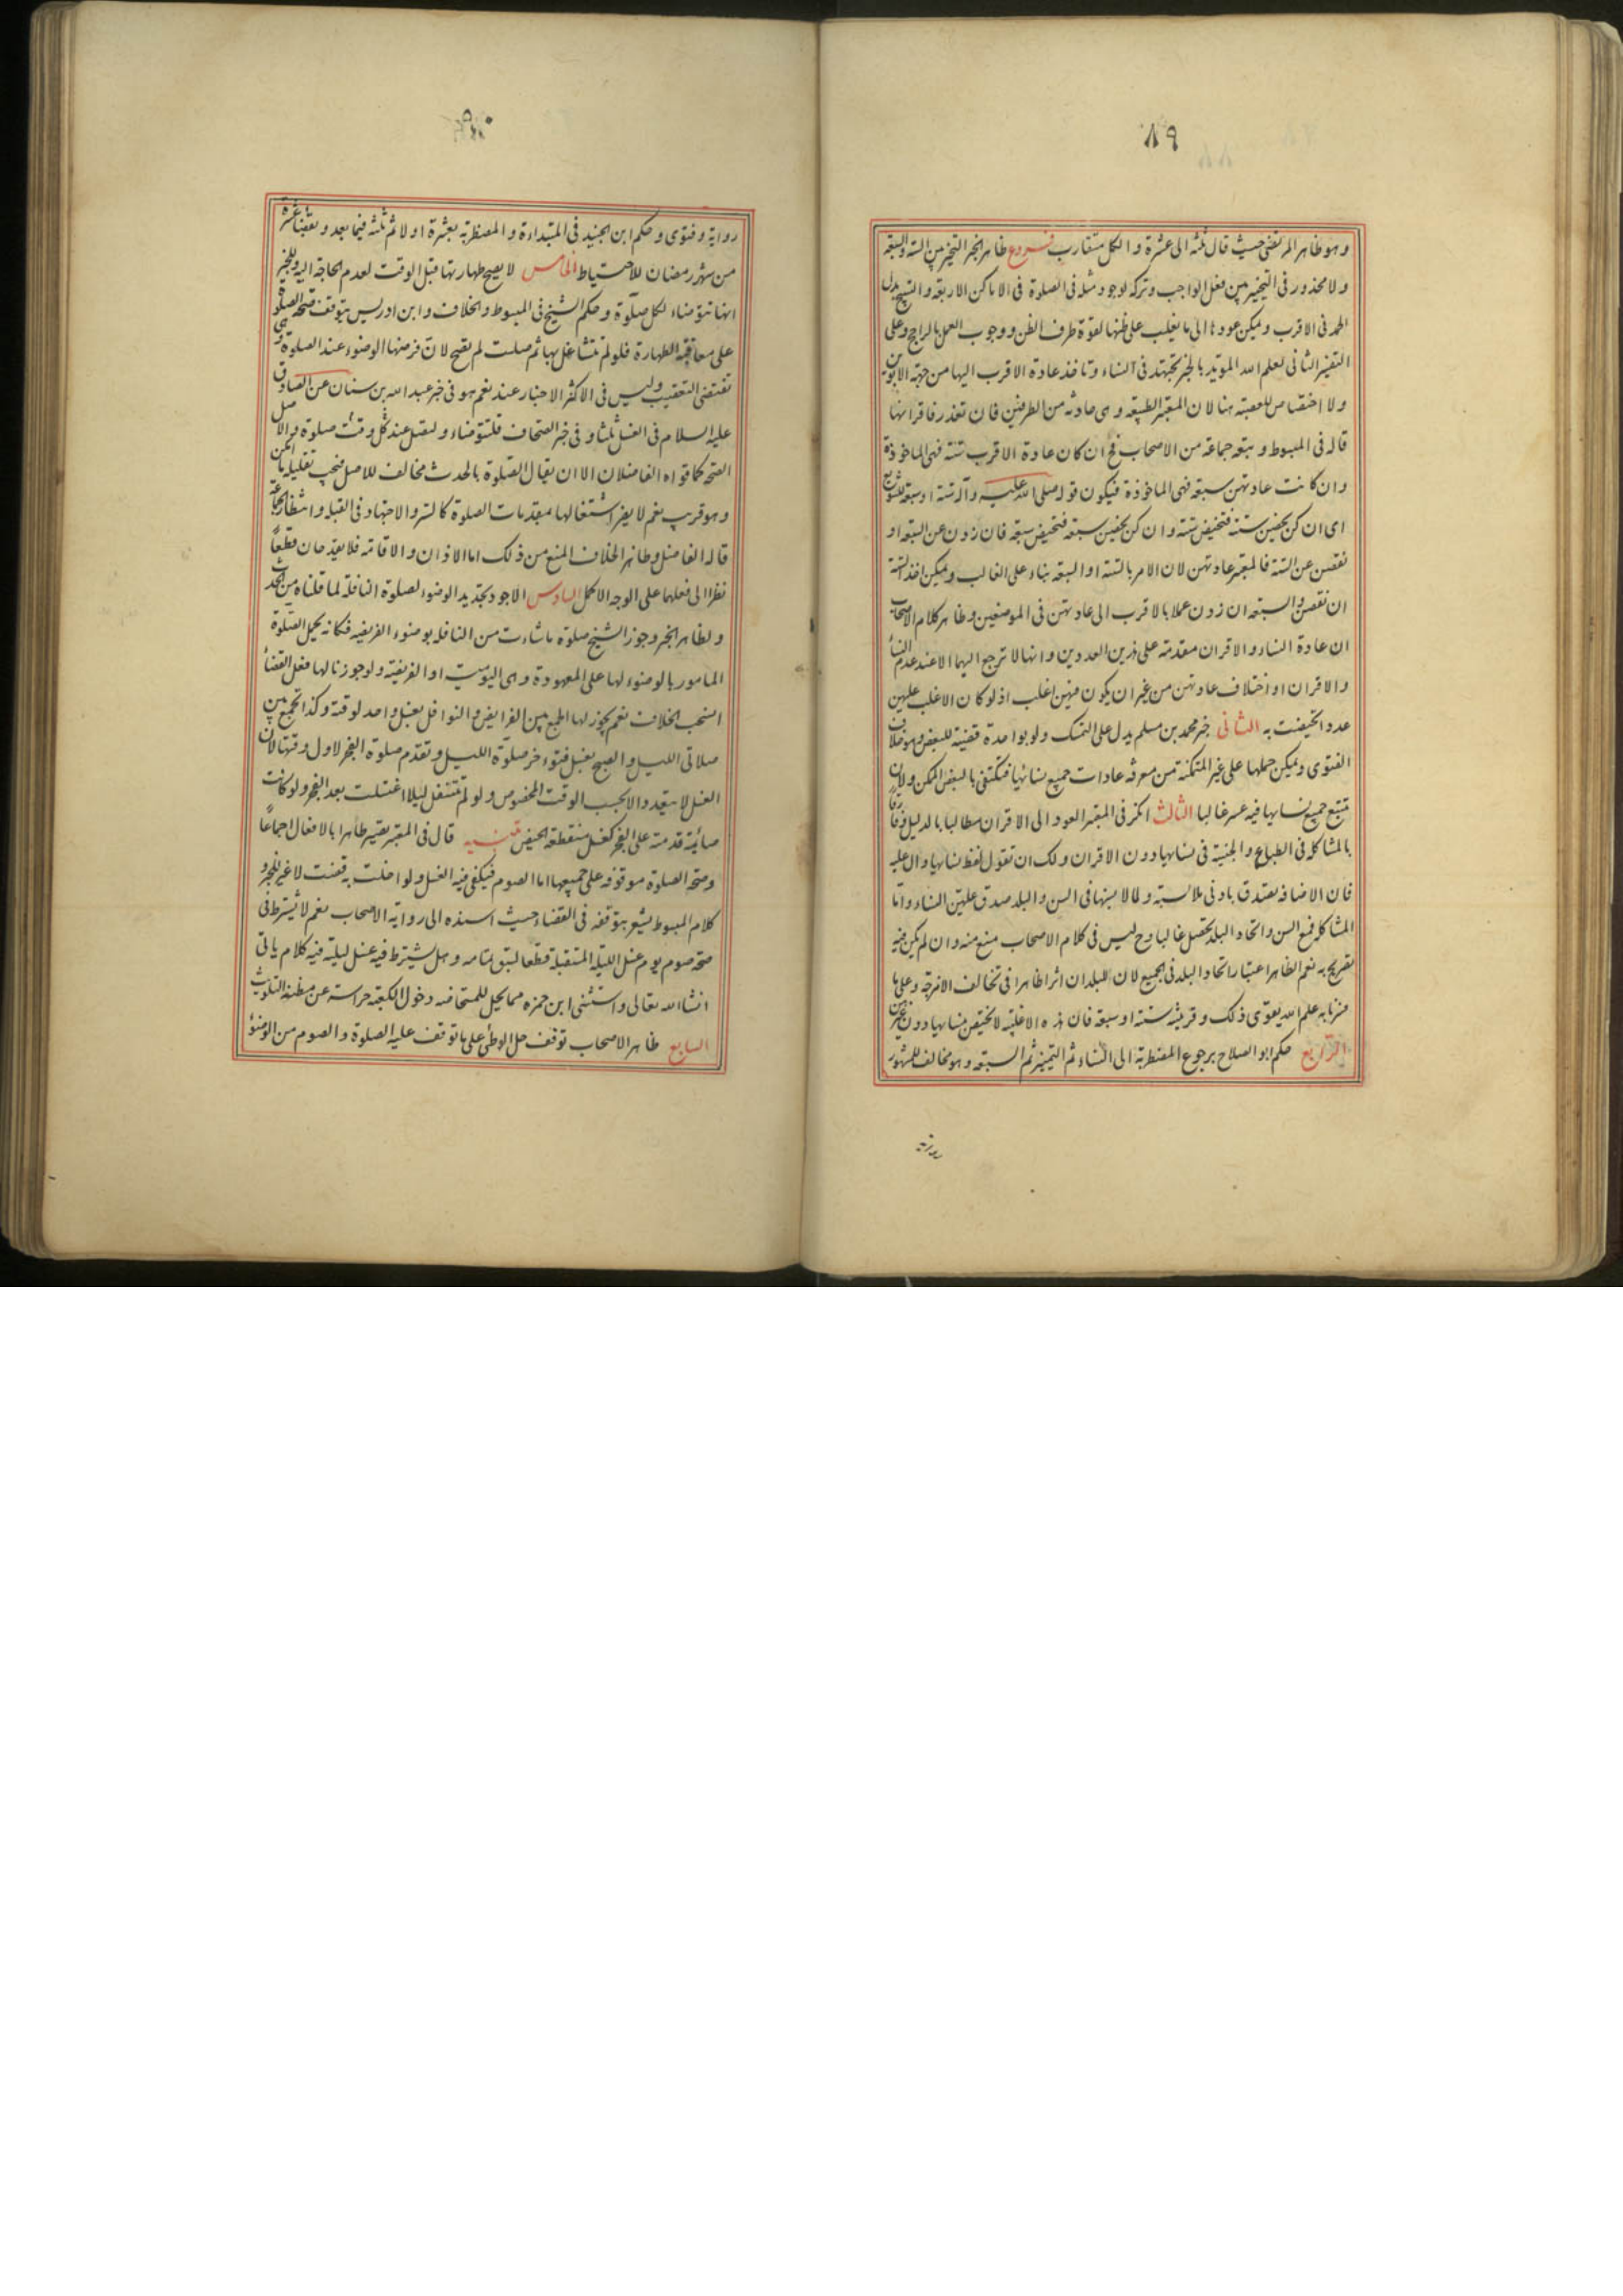 ٨٩
وهو ظاهر المرتضى حيث قال ثلثه الى عشرة والكل متقارب فروع ظاهر الخبر التخير بين الستة والسبعة
ولا محذور فى التخيير بين فعل الواجب وتركه لوجود مثله فى الصلوة فى الاماكن الاربعة والتسبيح بدل
الحمد فى الاقرب ويمكن عودها الى ما يغلب على ظنها لقوة طرف الظن ووجوب العمل بالراجح وعلى
التفسير الثانى لعلم الله المويد بالخبر تجتهد فى النساء وتاخذ عادة الاقرب اليها من جهة الابوين
ولا اختصاص للعصبة هنا لان المعتبر الطبيعه وهى حادثه من الطرفين فان تعذر فاقرانها
قاله فى المبسوط وتبعه جماعة من الاصحاب فح ان كان عادة الاقرب ستة فهى الماخوذة
وان كانت عادتهن سبعه فهى الماخوذة فيكون قوله صلى الله عليه وآله ستة او سبعه للتنويع
اى ان كن يحضن ستة فتحيض ستة وان كن يحضن سبعه فتحيض سبعه فان زدن عن السبعه او
نقصن عن الستة فالمعتبر عادتهن لان الامر بالستة او السبعه بناء على الغالب ويمكن اخذ الستة
ان نقصن والسبعه ان زدن عملا بالاقرب الى عادتهن فى الموضعين وظاهر كلام الاصحاب
ان عادة النساء والاقران مقدمة على هذين العددين وانها لا ترجع اليهما الا عند عدم النسأ
والاقران او اختلاف عادتهن من غير ان يكون فيهن اغلب اذ لو كان الاغلب عليهن
عددا تحيضت به الثانى خبر محمد بن مسلم يدل على التمسك ولو بواحدة قضية للبعض وهو خلاف
الفتوى ويمكن حملها على غير المتمكنة من معرفه عادات جميع نسائها فتكتفى بالبعض الممكن ولان
تتبع جميع نسايها فيه عسر غالبا الثالث انكر فى المعتبر العود الى الاقران مطالبا بالدليل فارقاً
بالمشاكلة فى الطباع والجنسية فى نسايها دون الاقران ولك ان تقول لفظ نسايها دال عليه
فان الاضافه تصدق بادنى ملابسة ولما لابسنها فى السن والبلد صدق عليهن النساء واما
المشاكله فمع السن واتحاد البلد تحصل غالبا وح ليس فى كلام الاصحاب منع منه وان لم يكن فيه
تصريح به نعم الظاهر اعتبار اتحاد البلد فى الجميع لان للبلدان اثرا ظاهرا فى تخالف الامزجة وعلى ما
فسرنا به علم الله يقوى ذلك وقرينته ستة او سبعة فان هذه الاغلبية لا تختص بنسايها دون غيرهن
الرابع حكم ابو الصلاح برجوع المضطربة الى النساء ثم التميز ثم السبعه وهو مخالف للمشهور
رواية
٩٠
رواية وفتوى وحكم ابن الجنيد فى المبتداءة والمضطربه بعشرة اولا ثم ثلثه فيما بعد وتقضى عشرة
من شهر رمضان للاحتياط الخامس لا يصح طهارتها قبل الوقت لعدم الحاجة اليه وللخبر
انها تتوضاء لكل صلوة وحكم الشيخ فى المبسوط والخلاف وابن ادريس بتوقف صحة الصلوة
على معاقبة الطهارة فلو لم تتشاغل بها ثم صلت لم تصح لان فرضها الوضوء عند الصلوة وهى
تقتضى التعقيب وليس فى الاكثر الاخبار عند نعم هو فى خبر عبد الله بن سنان عن الصادق
عليه السلام فى الغسل ثلثا وفى خبر الصحاف فلتتوضاء ولتصل عند كل وقت صلوة والاصل
الصحة كما قواه الفاضلان الا ان يقال الصلوة بالحدث مخالف للاصل فيجب تقليله ما امكن
وهو قريب نعم لا يضر اشتغالها بمقدمات الصلوة كالستر والاجتهاد فى القبلة وانتظار الجماعة
قاله الفاضل وظاهر الخلاف المنع من ذلك اما الاذان والاقامة فلا يقدحان قطعاً
نظرا الى فعلها على الوجه الاكمل السادس الاجود تجديد الوضوء لصلوة النافلة لما قلناه من الحدث
ولظاهر الخبر وجوز الشيخ صلوة ما شاءت من النافله بوضوء الفريضه فكانه يحمل الصلوة
المامور بالوضوء لها على المعهودة وهى اليومية او الفريضة ولو جوزنا لها فعل القضأ
انسحب الخلاف نعم يجوز لها الجمع بين الفرايض والنوافل بغسل واحد لوقته وكذا تجمع بين
صلاتى الليل والصبح بغسل فتؤخر صلوة الليل وتقدم صلوة الفجر لاول وقتها لان
الغسل لا يتعدد الا بحسب الوقت المخصوص ولو لم تتنفل ليلا اغتسلت بعد الفجر ولو كانت
صائمة قدمته على الفجر كغسل منقطعة الحيض تنبيه قال فى المعتبر تصير طاهرا بالافعال اجماعا
وصحة الصلوة موقوفه على جميعها اما الصوم فيكفى فيه الغسل ولو اخلت به قضت لا غير للخبر و
كلام المبسوط يشعر بتوقفه فى القضاء حيث اسنده الى رواية الاصحاب نعم لا يشترط فى
صحة صوم يوم غسل الليلة المستقبلة قطعا لسبق تمامه وهل يشترط فيه غسل ليلته فيه كلام ياتى
انشاالله تعالى واستثنى ابن حمزه مما يحل للمستحاضه دخول الكعبة حراسة عن مظنة التلويث
السابع ظاهر الاصحاب توقف حل الوطئ على ما توقف عليه الصلوة والصوم من الوضوء